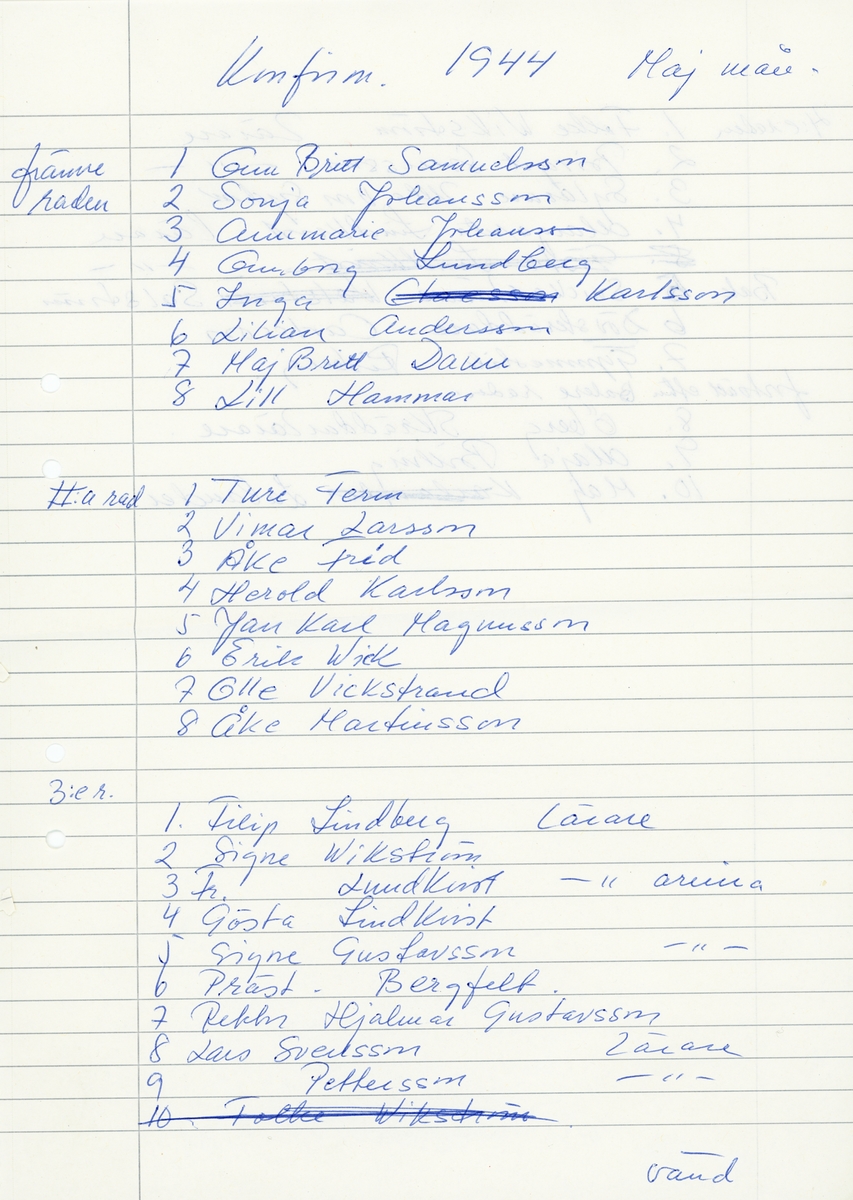 Konfirm. 1944 Maj mån.
främre raden
1 Gun Britt Samuelsson
2 Sonja Johansson
3 Annmarie Johansson
4 Gunborg Lundberg
5 Inga Claesson Karlsson
6 Lilian Andersson
7 Maj Britt Daun
8 Lill Hammar
II:a rad
1 Ture Ferm
2 Vimar Larsson
3 Åke Frid
4 Herold Karlsson
5 Jan Karl Magnusson
6 Erik Wick
7 Olle Vickstrand
8 Åke Martinsson
3:er.
1. Filip Lindberg Lärare
2 Signe Wikström
3 Fr. Lundkvist —"— arinna
4 Gösta Lindkvist
5 Signe Gustavsson —"—
6 Präst. Bergfelt.
7 Hjalmar Gustavsson
8 Lars Svensson Lärare
9 Pettersson —"—
10. Folke Wikström
vänd